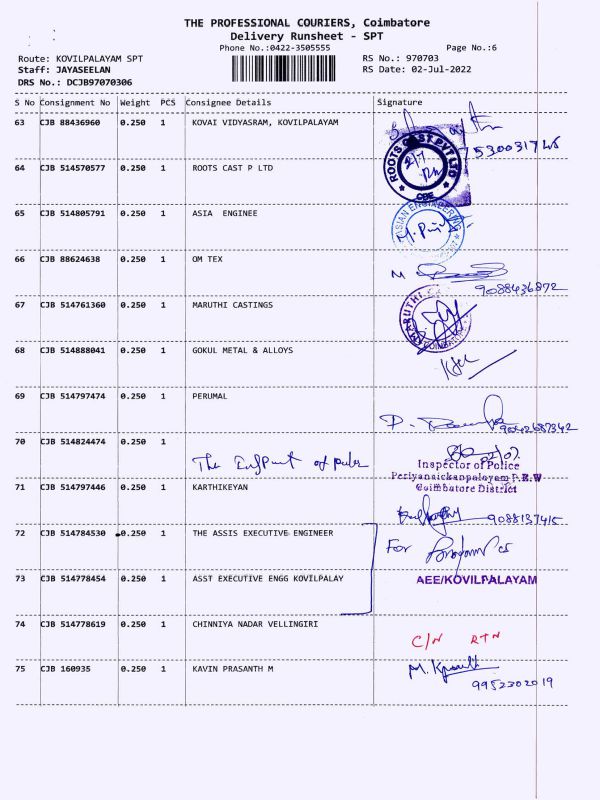 THE PROFESSIONAL COURIERS, Coimbatore
Delivery Runsheet - SPT
Phone No.:0422-3505555
Page No.:6
Route: KOVILPALAYAM SPT
RS No.: 970703
Staff: JAYASEELAN
RS Date: 02-Jul-2022
DRS No.: DCJB97070306
S No Consignment No Weight PCS Consignee Details Signature
63 CJB 88436960 0.250 1 KOVAI VIDYASRAM, KOVILPALAYAM
7530031745
64 CJB 514570577 0.250 1 ROOTS CAST P LTD
ROOTS CAST PVT LTD
CBE
65 CJB 514805791 0.250 1 ASIA ENGINEE
ASIAN ENGINEERING
66 CJB 88624638 0.250 1 OM TEX
9088436872
67 CJB 514761360 0.250 1 MARUTHI CASTINGS
MARUTHI
COIMBATORE
68 CJB 514888041 0.250 1 GOKUL METAL & ALLOYS
69 CJB 514797474 0.250 1 PERUMAL
9042687342
70 CJB 514824474 0.250 1
The
of
02/07
Inspector of Police
Periyanaickanpalayam P.E.W
Coimbatore District
71 CJB 514797446 0.250 1 KARTHIKEYAN
9088137415
72 CJB 514784530 0.250 1 THE ASSIS EXECUTIVE ENGINEER
For
73 CJB 514778454 0.250 1 ASST EXECUTIVE ENGG KOVILPALAY
AEE/KOVILPALAYAM
74 CJB 514778619 0.250 1 CHINNIYA NADAR VELLINGIRI
C/N RTN
75 CJB 160935 0.250 1 KAVIN PRASANTH M
9952302019